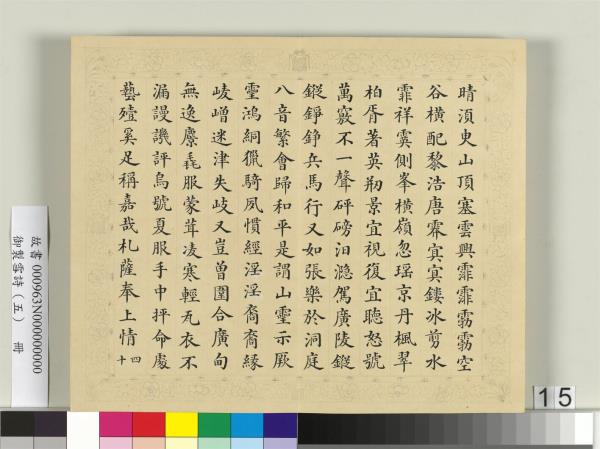 晴湏臾山頂塞雲興霏霏雱雱空
谷橫配黎浩唐霖寅寅鏤冰剪水
霏祥霙側峯橫嶺忽瑶京丹楓翠
柏胥著英剏景宜視復宜聽怒號
萬竅不一聲砰磅汨濦駕廣陵鏦
鏦錚錚兵馬行又如張樂於洞庭
八音繁會歸和平是謂山靈示厥
靈鴻絅獵騎夙慣經淫淫裔裔緣
崚嶒迷津失岐又豈曽圍合廣甸
無逸麏毳服蒙茸凌寒輕旡衣不
漏謾譏評烏號夏服手中抨命處
藝殪奚足稱嘉哉札薩奉上情
十四
故書 000963N000000000
御製雪詩（五） 冊
15